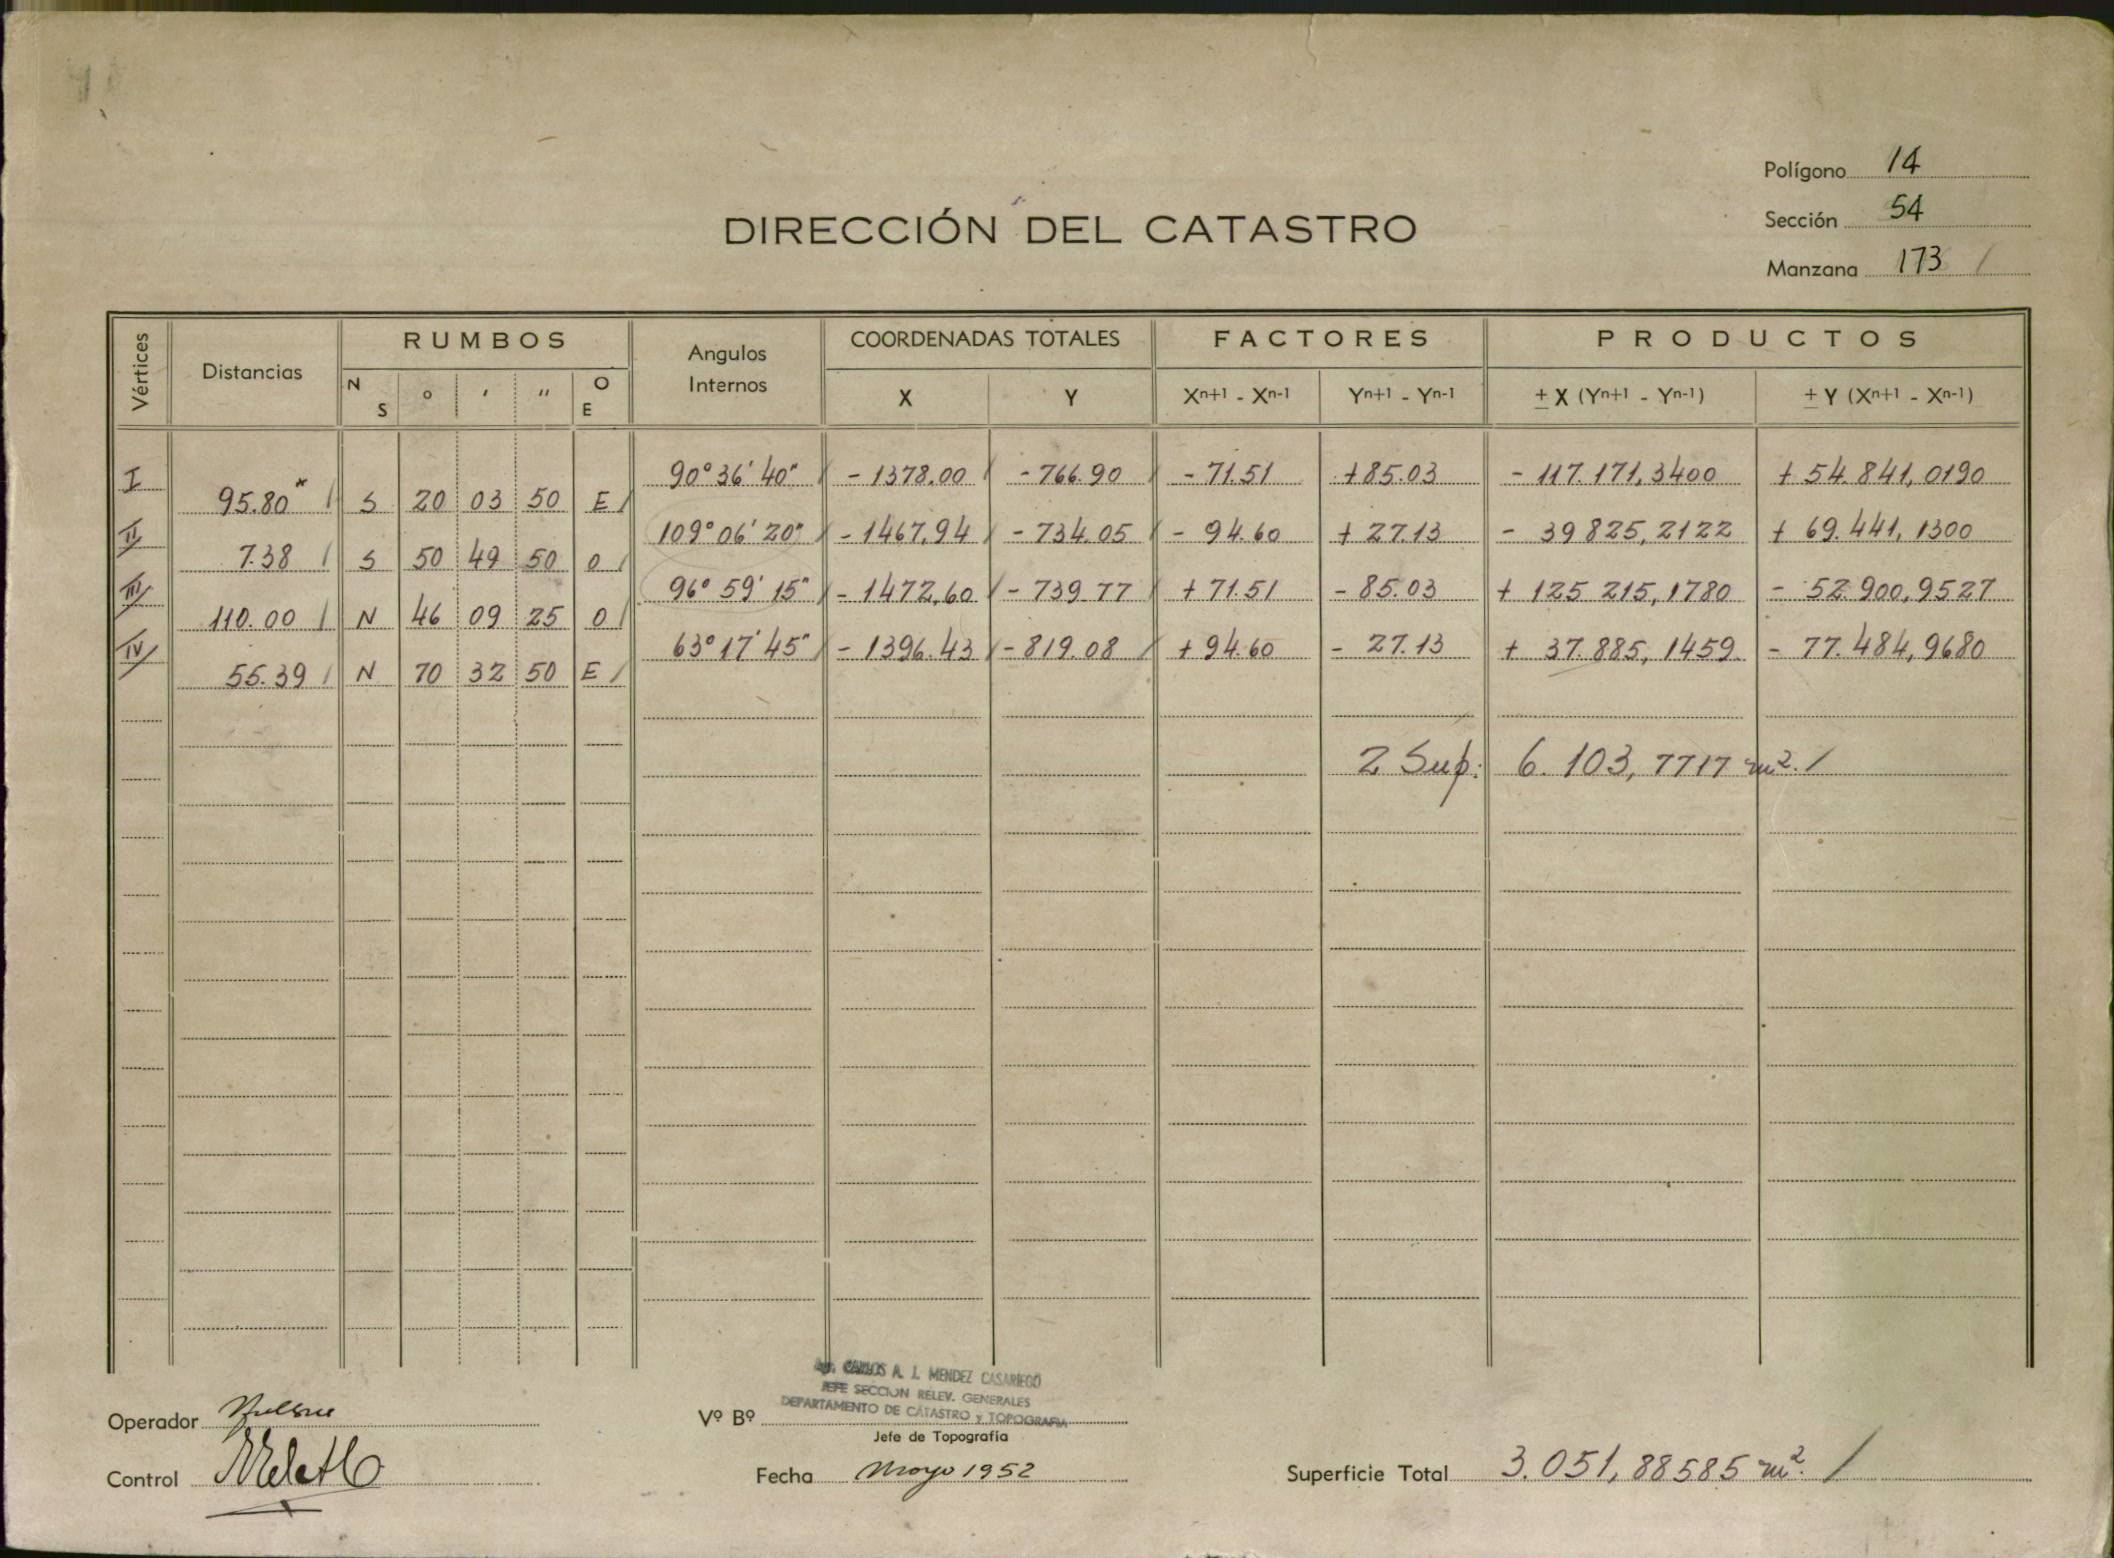 Polígono 14
Sección 54
Manzana 173 /
DIRECCIÓN DEL CATASTRO
Vértices Distancias RUMBOS Angulos Internos COORDENADAS TOTALES FACTORES PRODUCTOS
N S ° ' " O E X Y Xn+1 - Xn-1 Yn+1 - Yn-1 ± X (Yn+1 - Yn-1) ± Y (Xn+1 - Xn-1)
I 90° 36' 40" / - 1378.00 / - 766.90 / - 71.51 + 85.03 - 117.171,3400 + 54.841,0190
95.80* / S 20 03 50 E /
II 109° 06' 20" / - 1467,94 / - 734.05 / - 94.60 + 27.13 - 39825,2122 + 69.441,1300
7.38 / S 50 49 50 O /
III 96° 59' 15" / - 1472,60 / - 739.77 / + 71.51 - 85.03 + 125215,1780 - 52.900,9527
110.00 / N 46 09 25 O /
IV 63° 17' 45" / - 1396.43 / - 819.08 / + 94.60 - 27.13 + 37.885,1459 - 77.484,9680
55.39 / N 70 32 50 E /
2 Sup: 6.103,7717 m². /
Ag. CARLOS A. J. MENDEZ CASARIEGO
JEFE SECCION RELEV. GENERALES
DEPARTAMENTO DE CATASTRO y TOPOGRAFIA
Operador
Vº Bº
Jefe de Topografía
Control
Fecha Mayo 1952
Superficie Total 3.051,88585 m². /